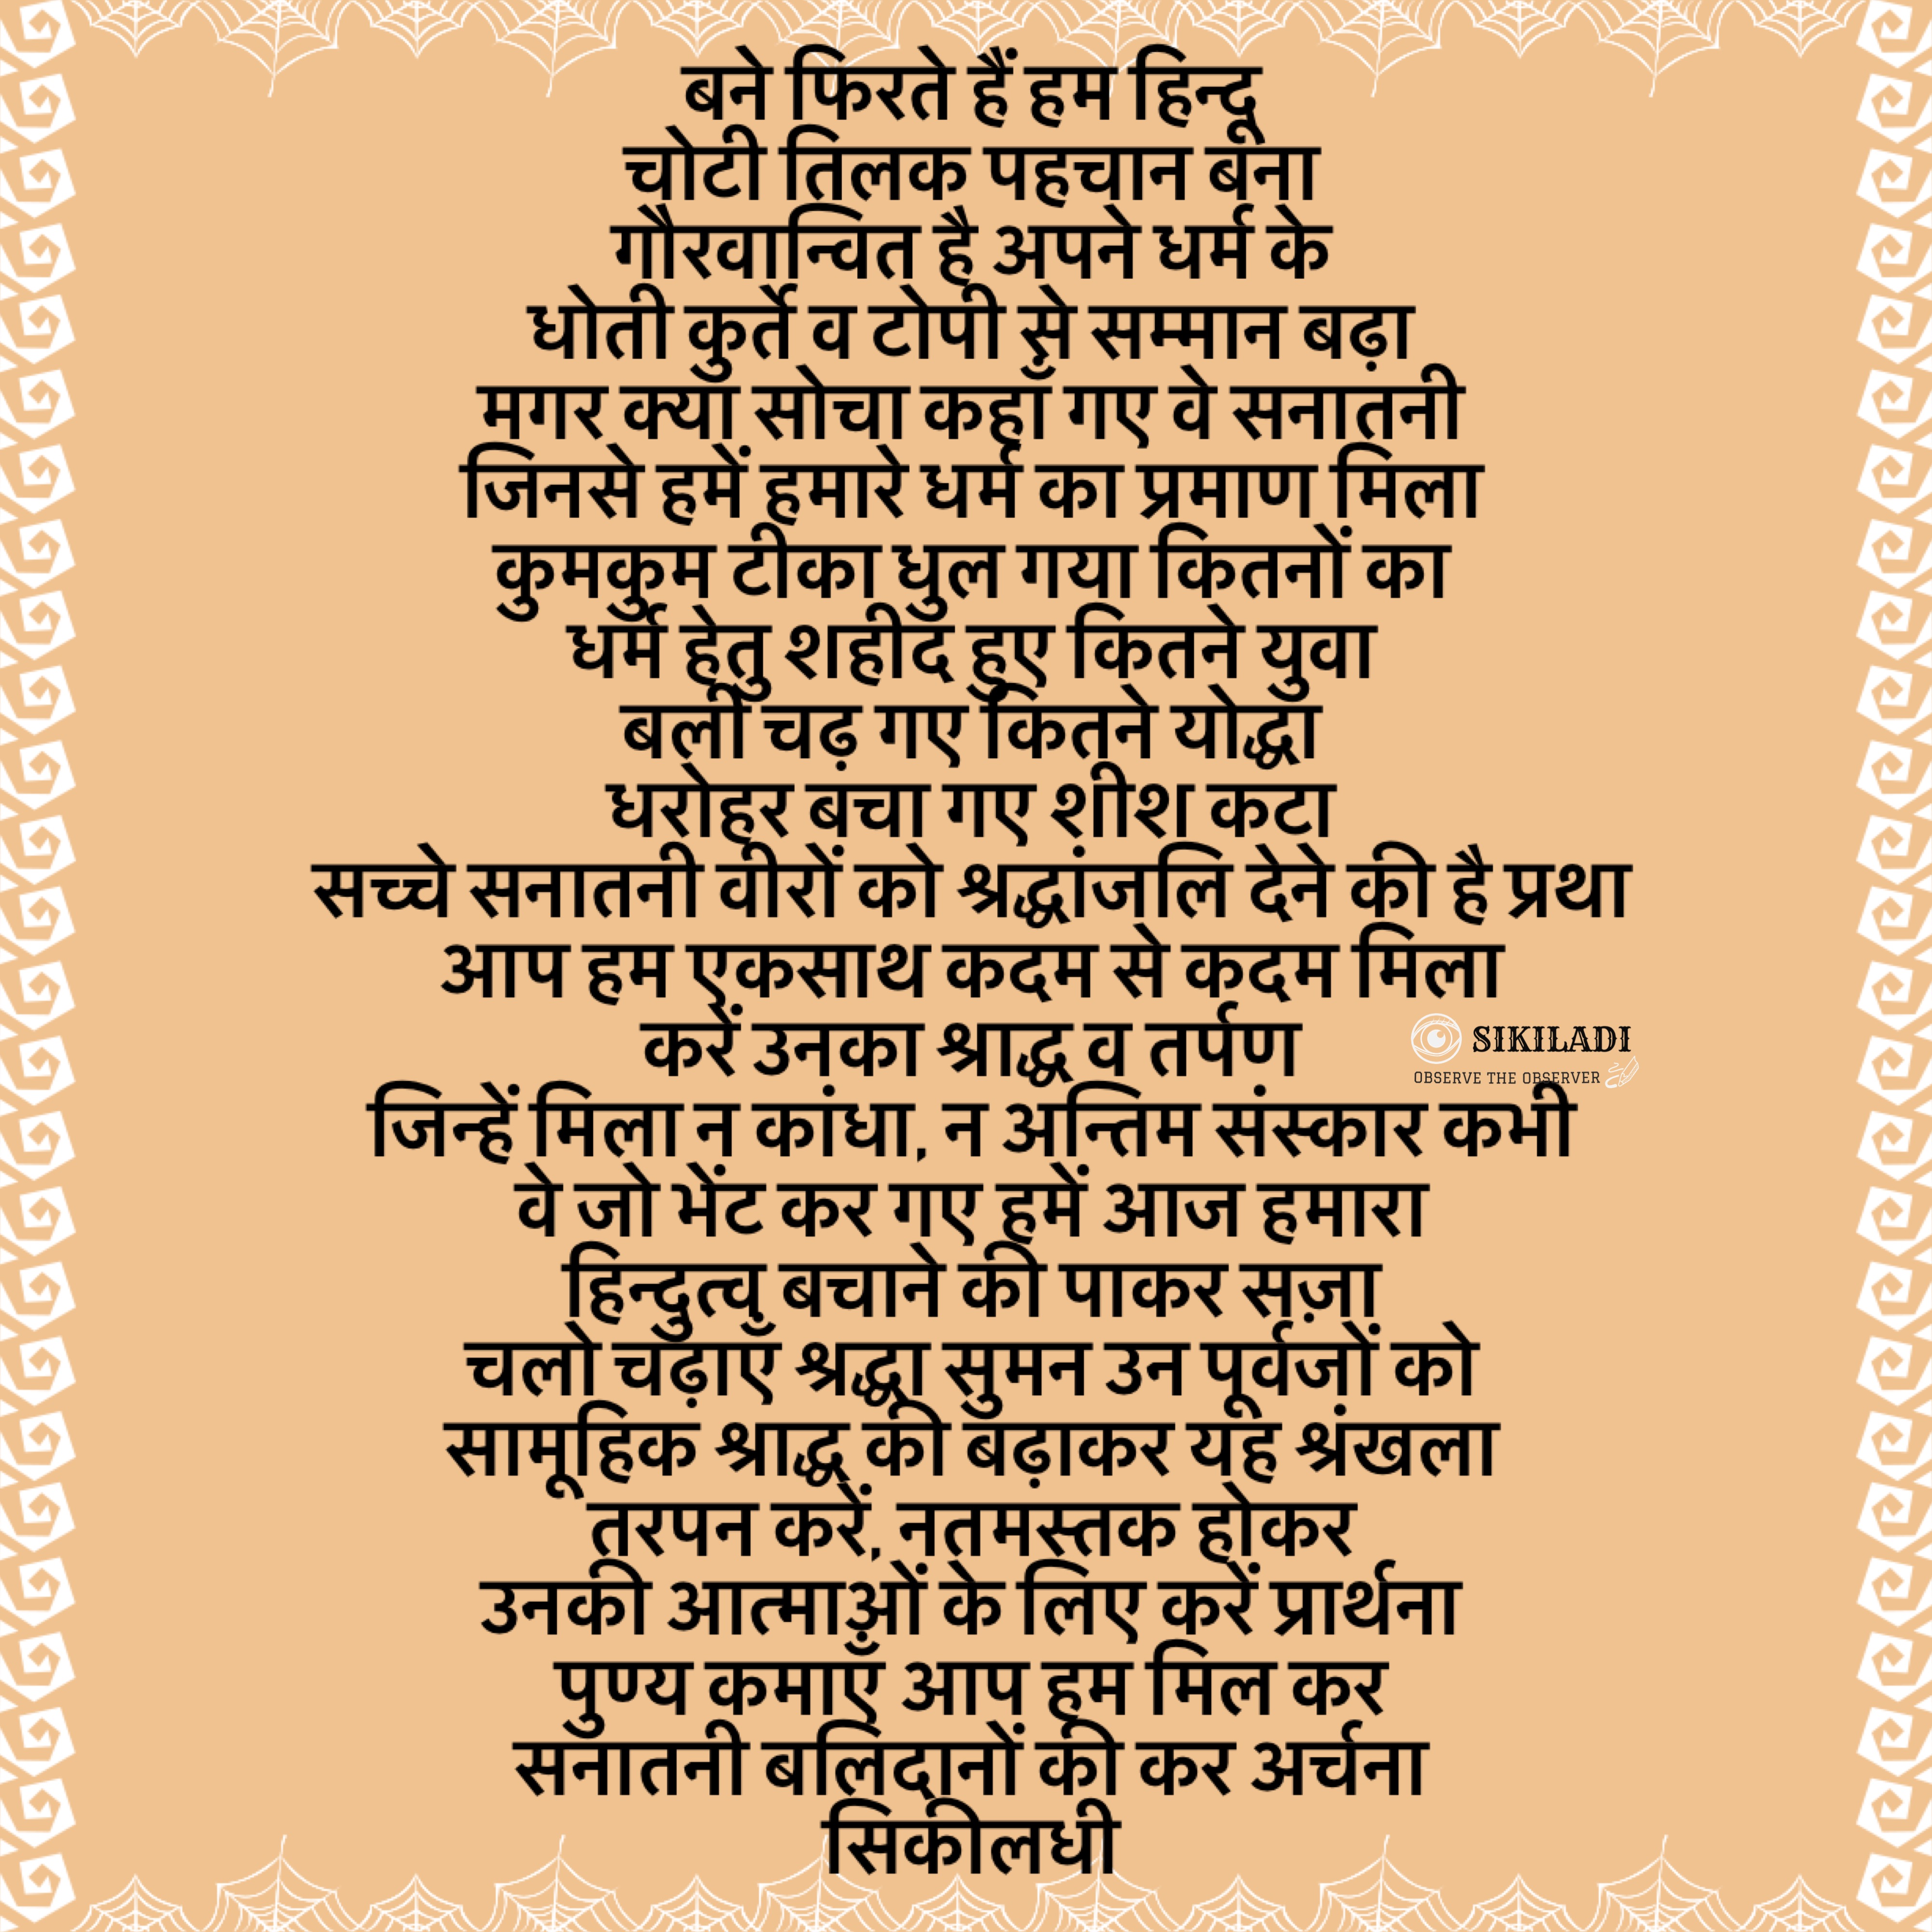 बने फिरते हैं हम हिन्दू
चोटी तिलक पहचान बना
गौरवान्वित है अपने धर्म के
धोती कुर्ते व टोपी से सम्मान बढ़ा
मगर क्या सोचा कहाँ गए वे सनातनी
जिनसे हमें हमारे धर्म का प्रमाण मिला
कुमकुम टीका धुल गया कितनों का
धर्म हेतु शहीद हुए कितने युवा
बली चढ़ गए कितने योद्धा
धरोहर बचा गए शीश कटा
सच्चे सनातनी वीरों को श्रद्धांजलि देने की है प्रथा
आप हम एकसाथ कदम से कदम मिला
करें उनका श्राद्ध व तर्पण
SIKILADI
OBSERVE THE OBSERVER
जिन्हें मिला न कांधा, न अन्तिम संस्कार कभी
वे जो भेंट कर गए हमें आज हमारा
हिन्दुत्व बचाने की पाकर सज़ा
चलो चढ़ाएँ श्रद्धा सुमन उन पूर्वजों को
सामूहिक श्राद्ध की बढ़ाकर यह श्रंखला
तरपन करें, नतमस्तक होकर
उनकी आत्माओं के लिए करें प्रार्थना
पुण्य कमाएँ आप हम मिल कर
सनातनी बलिदानों की कर अर्चना
सिकीलधी